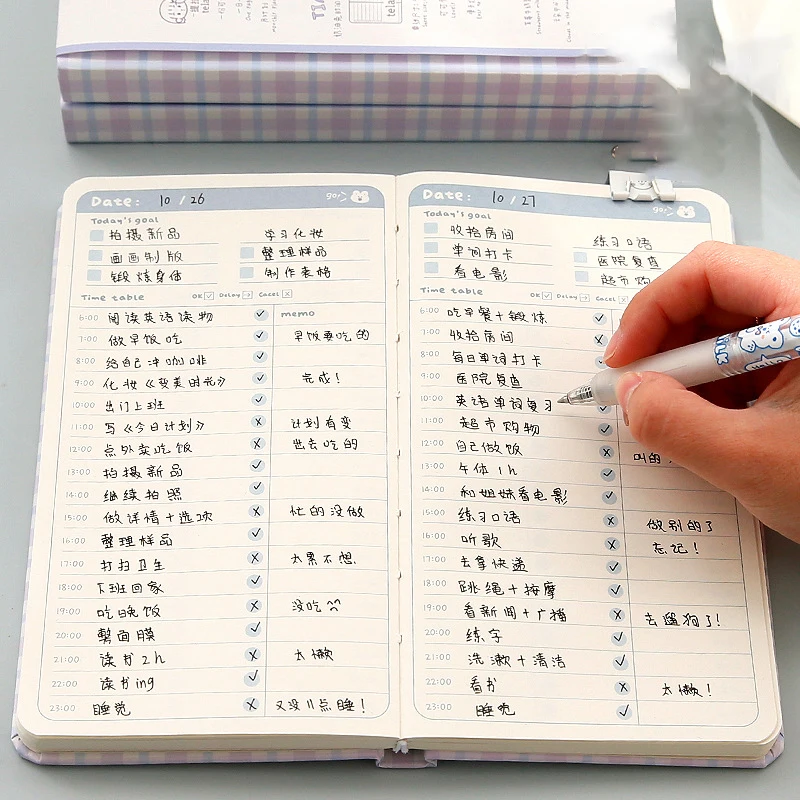 Date: 10 / 26
Today's goal
拍摄新品 学习化妆
画画制版 整理样品
锻炼身体 制作表格
Time table OK Delay Cacel
6:00 阅读英语读物 memo
7:00 做早饭吃 早饭要吃的
8:00 给自己冲咖啡
9:00 化妆《变美时光》 完成!
10:00 出门上班
11:00 写《今日计划》 计划有变
12:00 点外卖吃饭 出去吃的
13:00 拍摄新品
14:00 继续拍照
15:00 做详情+选项 忙的没做
16:00 整理样品
17:00 打扫卫生 太累不想
18:00 下班回家
19:00 吃晚饭 没吃
20:00 敷面膜
21:00 读书2h 太懒
22:00 读书ing
23:00 睡觉 又没11点睡!
Date: 10 / 27
Today's goal
收拾房间 练习口语
单词打卡 医院复查
看电影 超市购
Time table OK Delay Cacel
6:00 吃早餐+锻炼
7:00 收拾房间
8:00 每日单词打卡
9:00 医院复查
10:00 英语单词复习
11:00 超市购物
12:00 自己做饭 叫的
13:00 午休1h
14:00 和姐妹看电影
15:00 练习口语 做别的了
16:00 听歌 忘记!
17:00 去拿快递
18:00 跳绳+按摩
19:00 看新闻+广播 去遛狗了!
20:00 练字
21:00 洗漱+清洁
22:00 看书 太懒!
23:00 睡觉